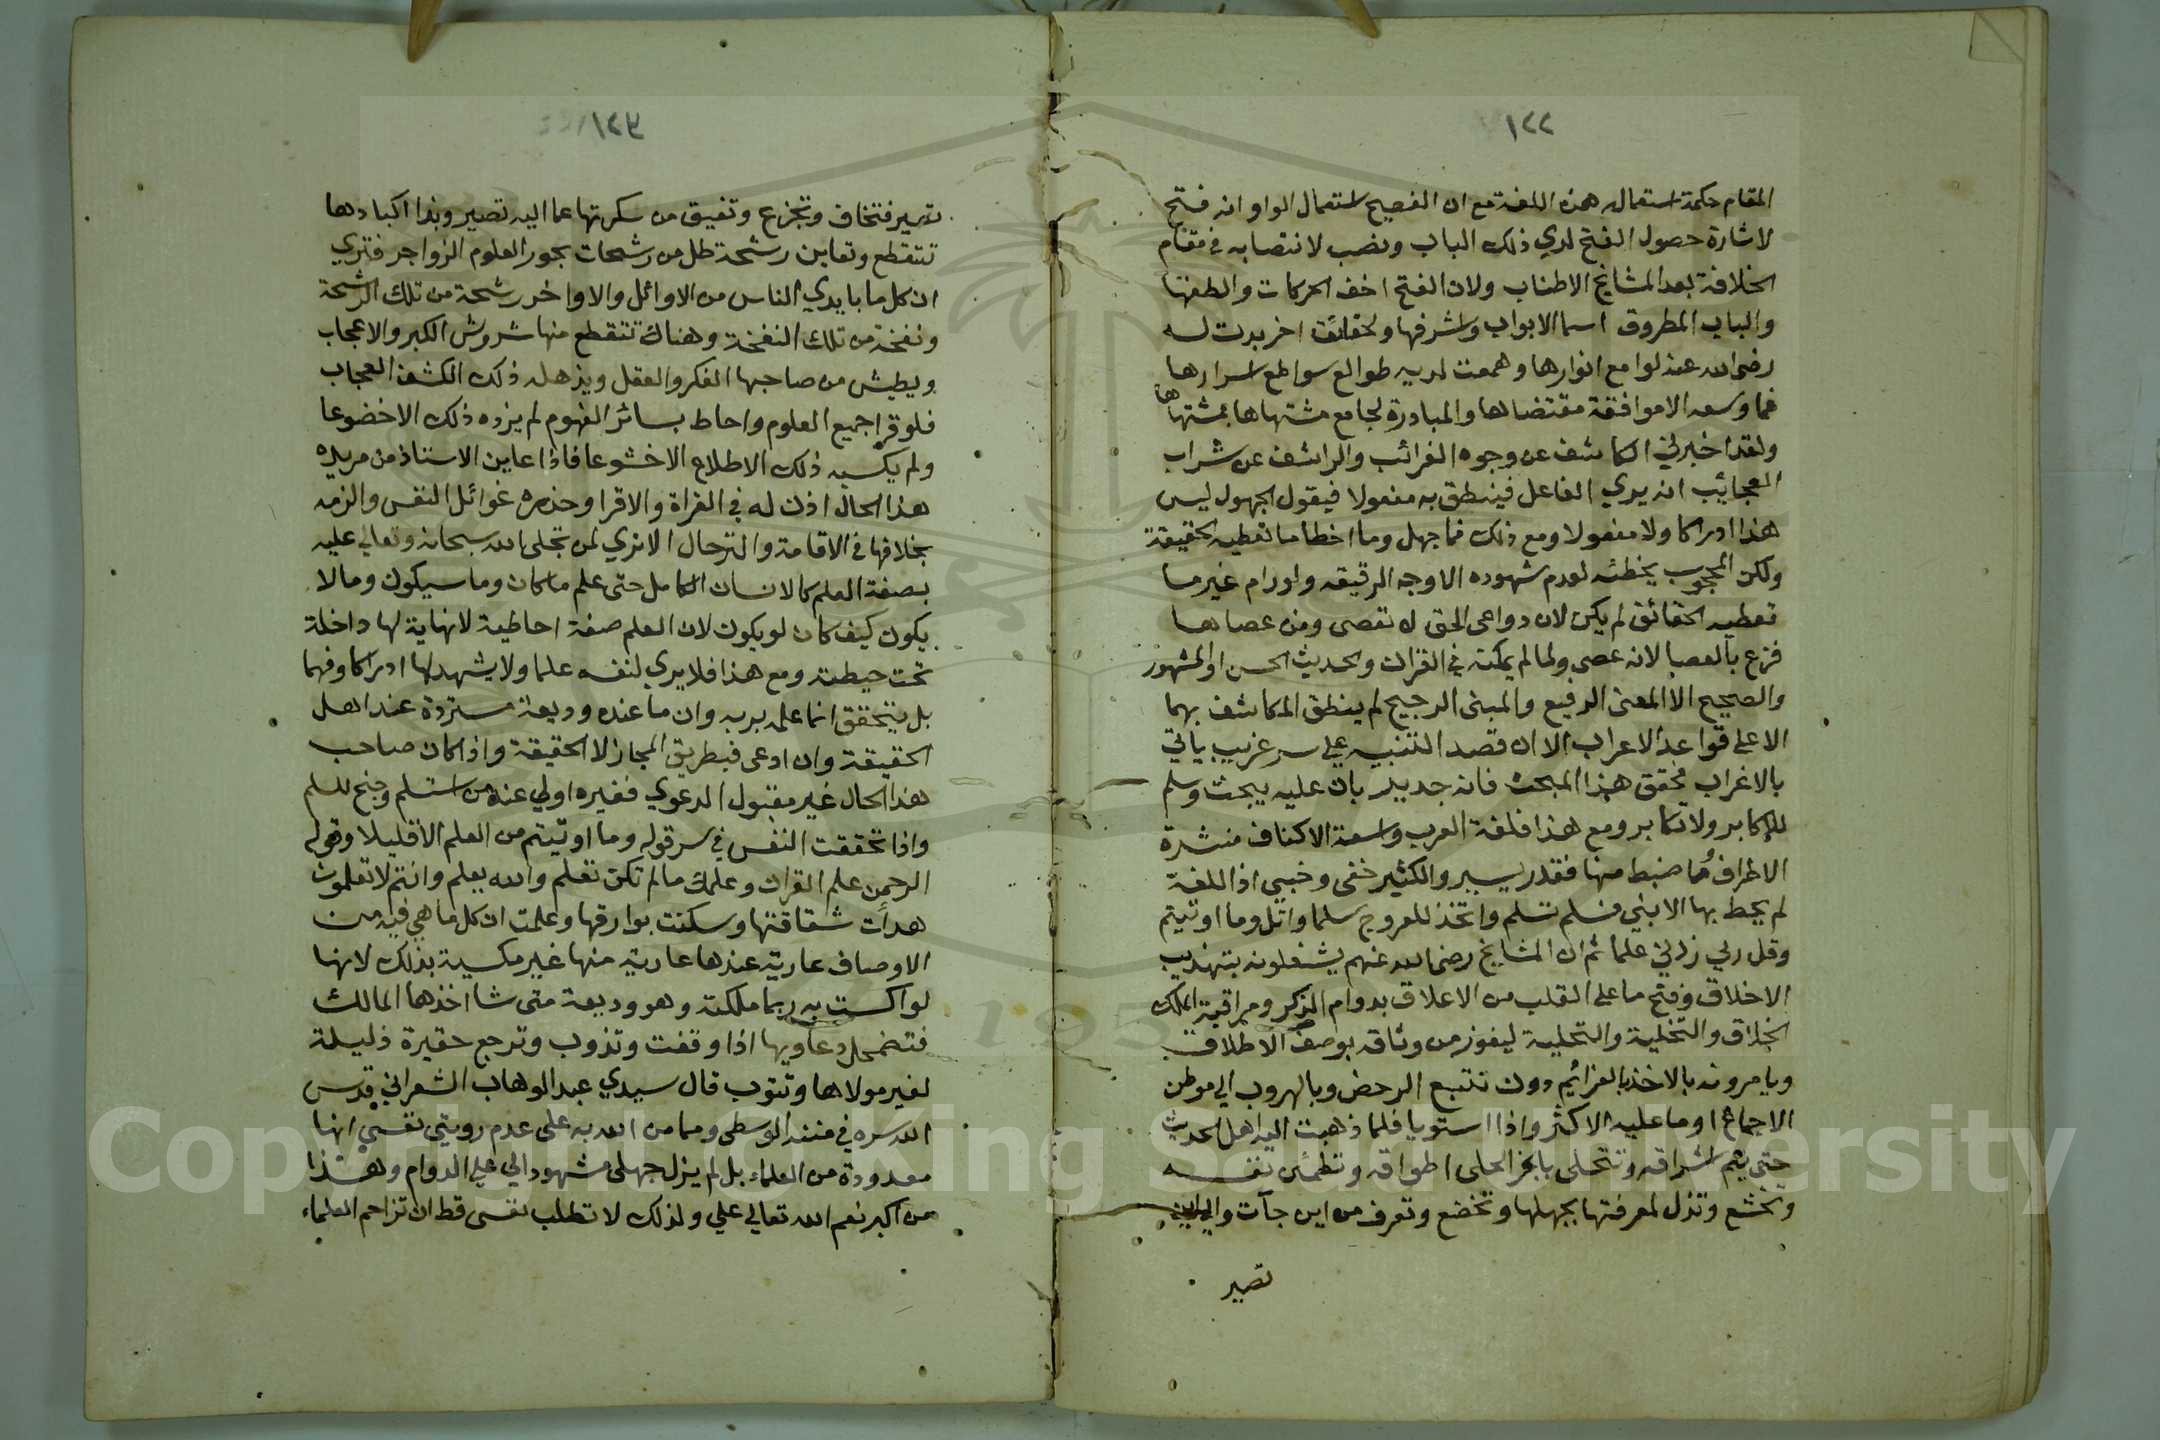 ١٢٢
المقام حكمة استعمال هذه اللغة مع ان الفصيح استعمال الواو انه فتح
لاشارة حصول الفتح لدي ذلك الباب ونصب لانتصابه في مقام
الخلافة بعد المشايخ الاطناب ولان الفتح اخف الحركات والطفها
والباب المطروق اسما الابواب واشرفها ولحقائق اخر بدت له
رضي الله عنه لوامع انوارها وهمعت لديه طوالع سواطع اسرارها
فما وسعه الا موافقة مقتضاها والمبادرة لجامع مشتهاها بمشتهاها
ولقد اخبرني الكاشف عن وجوه الغرائب والراشف عن شراب
العجائب انه يري الفاعل فينطق به مفعولا فيقول الجهول ليس
هذا ادراكا ولا مفعولا ومع ذلك فما جهل وما اخطا ما تعطيه الحقيقة
ولكن المحجوب يخطئه لعدم شهوده الاوجه الرقيقه ولو رام غير ما
تعطيه الحقائق لم يكن لان دواعي الحق لا تعصي ومن عصاها
فزع بالعصا لانه عصي ولما لم يمكنه في القران والحديث الحسن او المشهور
والصحيح الا المعني الرفيع والمبني الرجيح لم ينطق المكاشف بهما
الا علي قواعد الاعراب الا ان قصد التنبيه علي سر غريب ياتي
بالاغراب فحقق هذا المبحث فانه جدير بان عليه يبحث وسلم
للاكابر ولا تكابر ومع هذا فلغة العرب واسعة الاكناف منتشرة
الاطراف وما ضبط منها فقدر يسير والكثير خفي وخبي اذ اللغة
لم يحط بها الا نبي فسلم تسلم واتخذ للعروج سلما واتل وما اوتيتم
وقل ربي زدني علما ثم ان المشايخ رضي الله عنهم يشغلونه بتهذيب
الاخلاق وفتح ما علي القلب من الاغلاق بدوام الذكر ومراقبة الملك
الخلاق والتخلية والتحلية ليفوز من وثاقه بوصف الاطلاق
ويامرونه بالاخذ بالعزائم دون تتبع الرخص وبالهروب الي موطن
الاجماع او ما عليه الاكثر واذا استويا فلما ذهبت اليه اهل الحديث
حتي يتم اشراقه وتتحلي بابخر الحلي اطواقه وتطمئن نفسه
وتخشع وتذل لمعرفتها بجهلها وتخضع وتعرف من اين جآت والي اين
تصير
تصير فتخاف وتجزع وتفيق من سكرتها عما اليه تصير وبذا اكبادها
تتقطع وتعاين رشحة طل من رشحات بحور العلوم الزواجر فتري
ان كل ما بايدي الناس من الاوائل والاواخر رشحة من تلك الرشحة
ونفخة من تلك النفخة وهناك تتقطع منها شروش الكبر والاعجاب
ويطيش من صاحبها الفكر والعقل ويذهله ذلك الكشف العجاب
فلو قرا جميع العلوم واحاط بسائر الفهوم لم يزده ذلك الا خضوعا
ولم يكسبه ذلك الاطلاع الا خشوعا فاذا عاين الاستاذ من مريده
هذا الحال اذن له في القراة والاقرا وحذره غوائل النفس والزمه
بخلافها في الاقامة والترحال الا تري لمن تجلي الله سبحانه وتعالي عليه
بصفة العلم كالانسان الكامل حتي علم ما كان وما سيكون وما لا
يكون كيف كان لو يكون لان العلم صفة احاطية لا نهاية لها داخلة
تحت حيطته ومع هذا فلا يري لنفسه علما ولا يشهد لها ادراكا وفهما
بل يتحقق انما علمه بربه وان ما عنده وديعة مستردة عند اهل
الحقيقة وان ادعي فبطريق المجاز لا الحقيقة واذا كان صاحب
هذا الحال غير مقبول الدعوي فغيره اولي عند من استلم وجنح للسلم
واذا تحققت النفس في سر قوله وما اوتيتم من العلم الا قليلا وقوله
الرحمن علم القران وعلمك ما لم تكن تعلم والله يعلم وانتم لا تعلمون
هدأت شقاقتها وسكنت بوارقها وعلمت ان كل ما هي فيه من
الاوصاف عارية عندها عارية منها غير مكسية بذلك لانها
لو اكست به ربما ملكته وهو وديعة متي شا اخذها المالك
فتضمحل دعاويها اذا وقفت وتذوب وترجع حقيرة ذليلة
لغير مولاها وتتوب قال سيدي عبد الوهاب الشعراني قدس
الله سره في مننه الوسطي ومما من الله به علي عدم رويتي نفسي انها
معدودة من العلماء بل لم يزل جهلي مشهودا لي علي الدوام وهذا
من اكبر نعم الله تعالي علي ولذلك لا تطلب نفسي قط ان تزاحم العلماء
Copyright © King Saud University
195